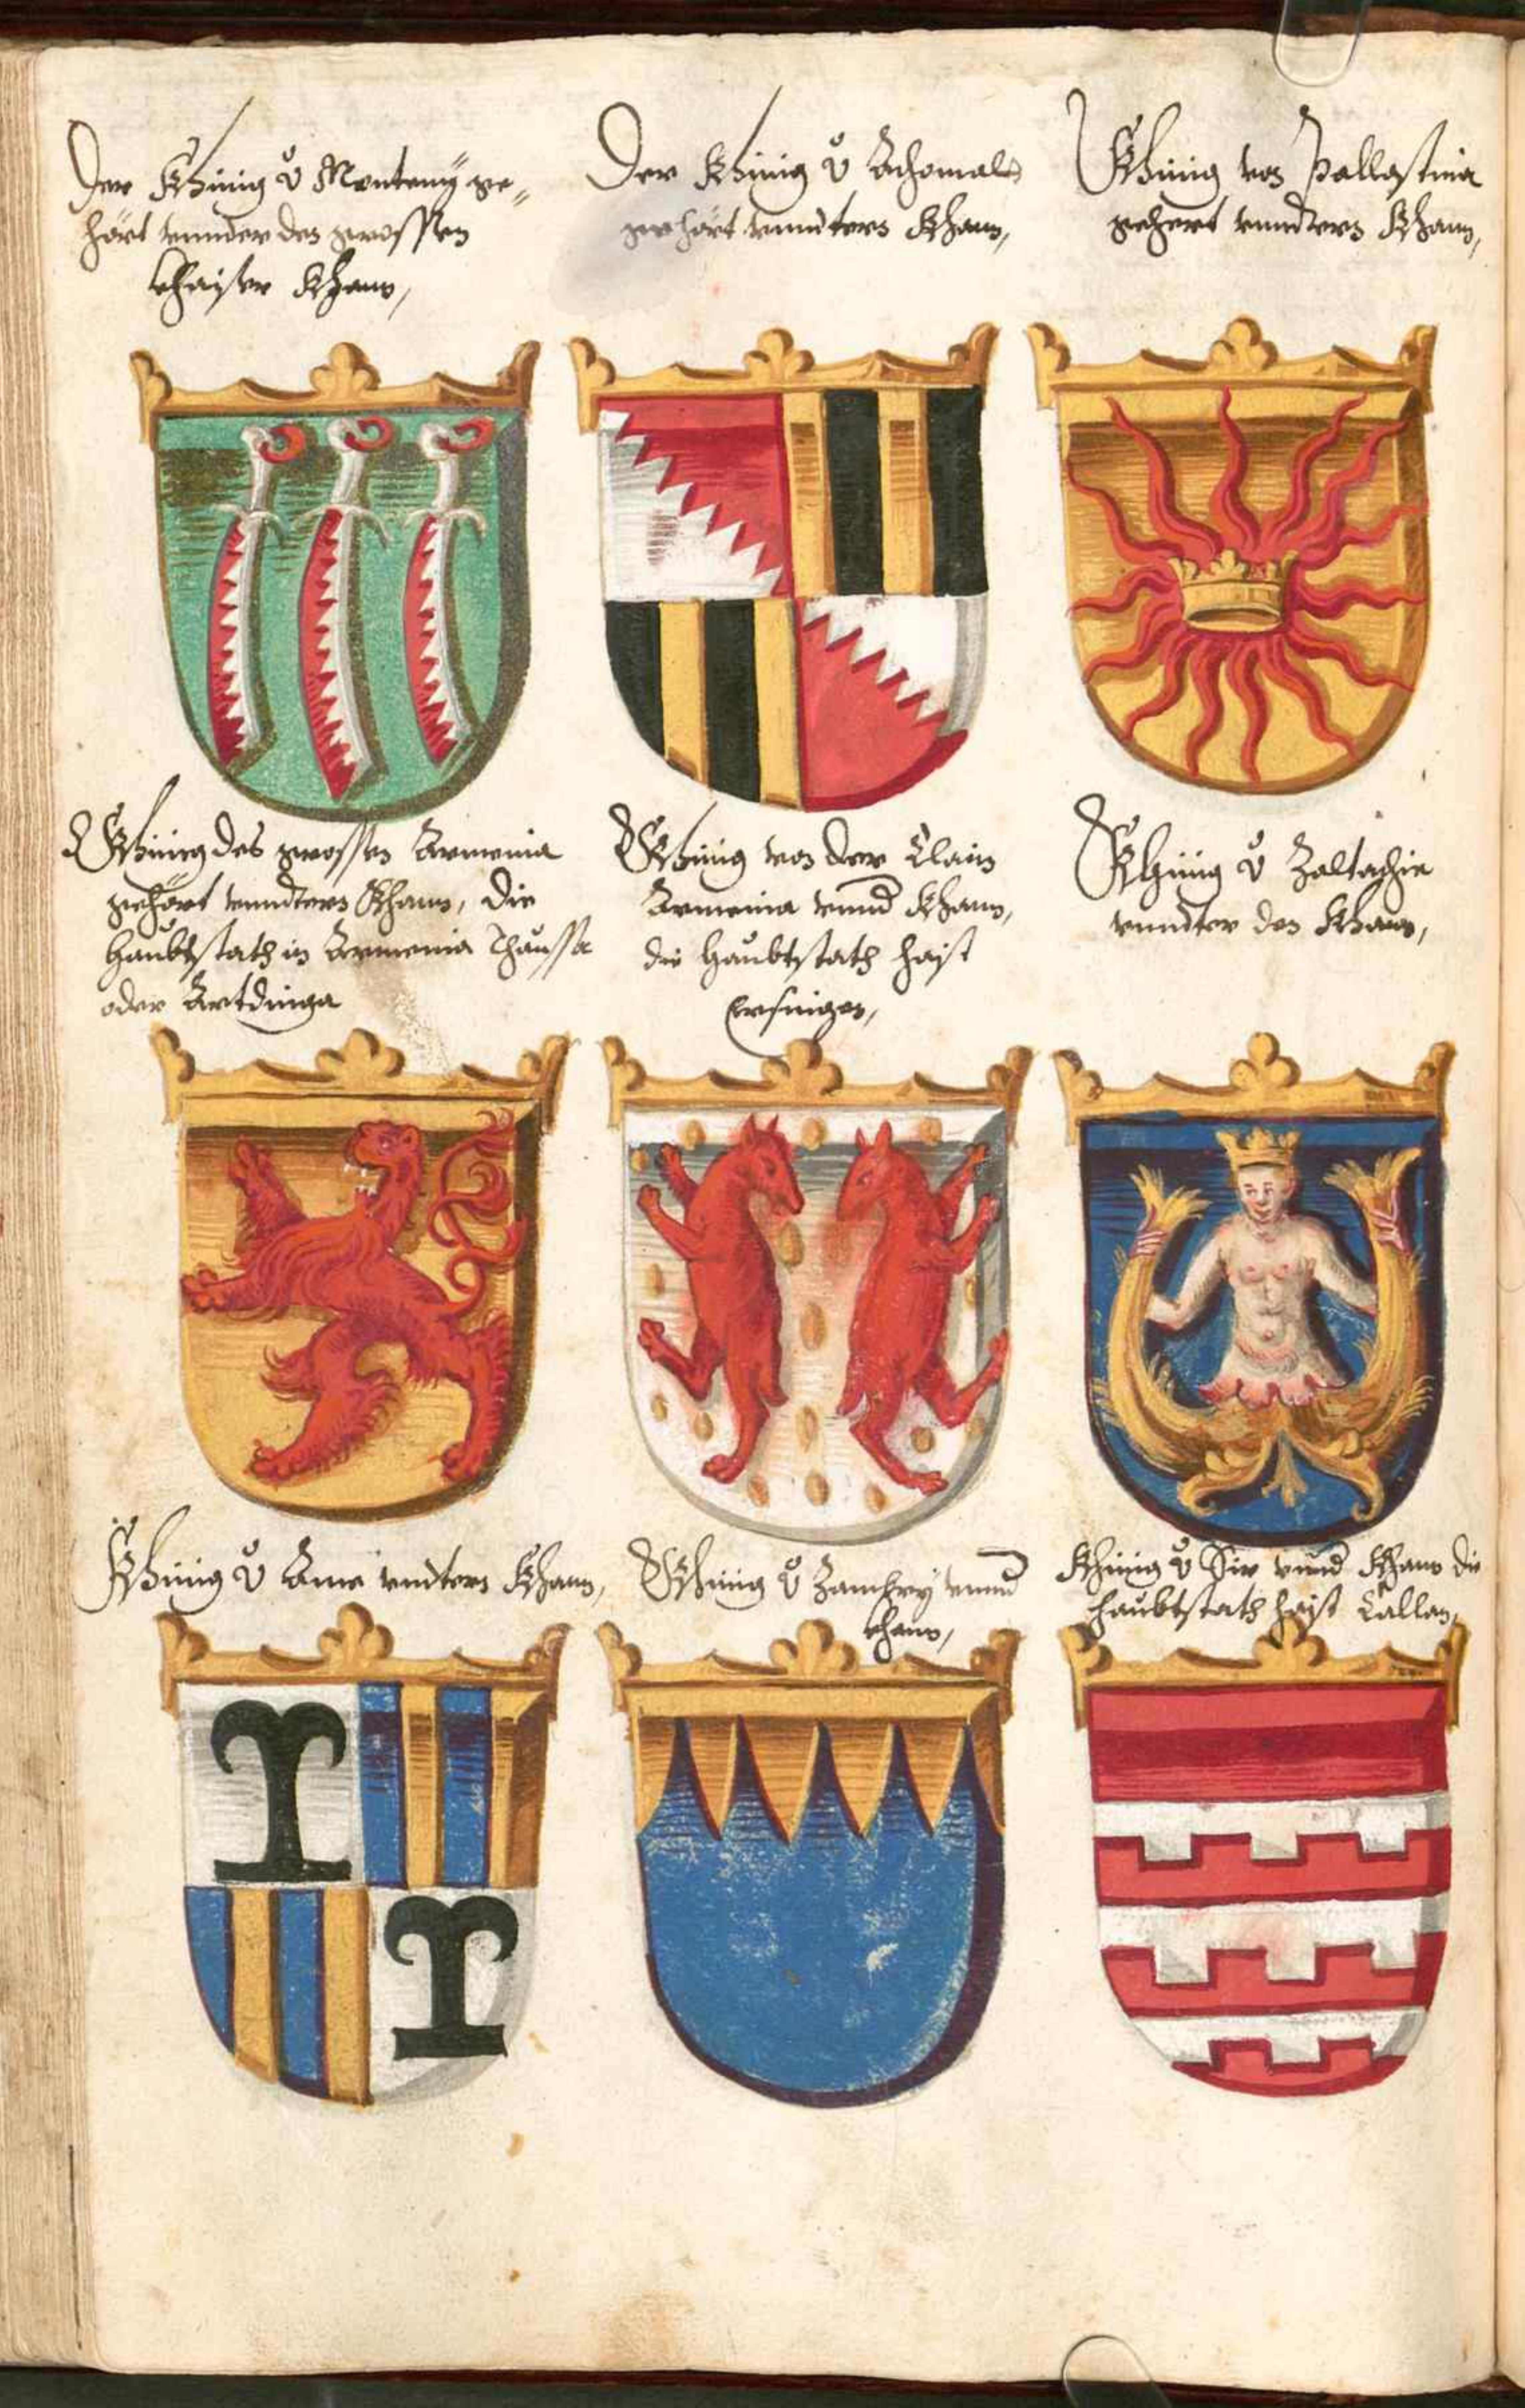 Der Khinig v̊ Montenÿ ge-
hört vnnder den grossen
khaiser Khann,
Der Khinig v̊ Achomals
gehört vnndters Khann,
Khinig von Pallastina
gehert vnndters Khann,
Khinig des grossen Armenia
gehört vnndters Khann, die
haubtstath in Armenia Thaussa
oder Artdinga
Khinig von der Clain
Armenia vnnd Khann,
die haubtstath haist
Ersingen,
Khinig v̊ Zaltachia
vnndter den Khann,
Khinig v̊ Ama vndters Khann,
Khinig v̊ Zamkrÿ vnnd
khann,
Khinig v̊ Sir vnnd Khann die
haubtstath haist Callan,